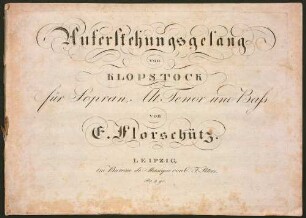 Auferstehungsgesang
von
KLOPSTOCK
für Sopran, Alt, Tenor und Baſs
von
E. Florschütz.
LEIPZIG,
Bureau de Musique von C. F. Peters.